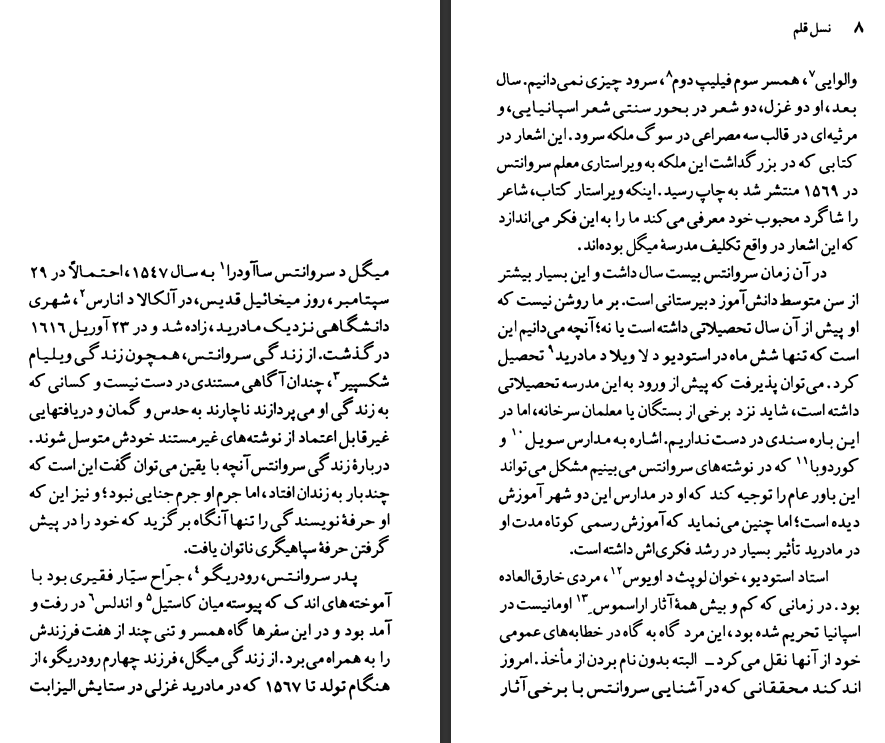 میگل د سروانتس ساآودرا۱ به سال ۱۵۴۷، احتمالاً در ۲۹
سپتامبر، روز میخائیل قدیس، در آلکالا د انارس۲، شهری
دانشگاهی نزدیک مادرید، زاده شد و در ۲۳ آوریل ۱۶۱۶
درگذشت. از زندگی سروانتس، همچون زندگی ویلیام
شکسپیر۳، چندان آگاهی مستندی در دست نیست و کسانی که
به زندگی او می‌پردازند ناچارند به حدس و گمان و دریافتهایی
غیرقابل اعتماد از نوشته‌های غیرمستند خودش متوسل شوند.
دربارهٔ زندگی سروانتس آنچه با یقین می‌توان گفت این است که
چندبار به زندان افتاد، اما جرم او جرم جنایی نبود؛ و نیز این که
او حرفهٔ نویسندگی را تنها آنگاه برگزید که خود را در پیش
گرفتن حرفهٔ سپاهیگری ناتوان یافت.
پدر سروانتس، رودریگو۴، جرّاح سیّار فقیری بود با
آموخته‌های اندک که پیوسته میان کاستیل۵ و اندلس۶ در رفت و
آمد بود و در این سفرها گاه همسر و تنی چند از هفت فرزندش
را به همراه می‌برد. از زندگی میگل، فرزند چهارم رودریگو، از
هنگام تولد تا ۱۵۶۷ که در مادرید غزلی در ستایش الیزابت
۸ نسل قلم
والوایی۷، همسر سوم فیلیپ دوم۸، سرود چیزی نمی‌دانیم. سال
بعد، او دو غزل، دو شعر در بحور سنتی شعر اسپانیایی، و
مرثیه‌ای در قالب سه مصراعی در سوگ ملکه سرود. این اشعار در
کتابی که در بزرگداشت این ملکه به ویراستاری معلم سروانتس
در ۱۵۶۹ منتشر شد به چاپ رسید. اینکه ویراستار کتاب، شاعر
را شاگرد محبوب خود معرفی می‌کند ما را به این فکر می‌اندازد
که این اشعار در واقع تکلیف مدرسهٔ میگل بوده‌اند.
در آن زمان سروانتس بیست سال داشت و این بسیار بیشتر
از سن متوسط دانش‌آموز دبیرستانی است. بر ما روشن نیست که
او پیش از آن سال تحصیلاتی داشته است یا نه؛ آنچه می‌دانیم این
است که تنها شش ماه در استودیو د لا ویلا د مادرید۹ تحصیل
کرد. می‌توان پذیرفت که پیش از ورود به این مدرسه تحصیلاتی
داشته است، شاید نزد برخی از بستگان یا معلمان سرخانه، اما در
این باره سندی در دست نداریم. اشاره به مدارس سویل۱۰ و
کوردوبا۱۱ که در نوشته‌های سروانتس می‌بینیم مشکل می‌تواند
این باور عام را توجیه کند که او در مدارس این دو شهر آموزش
دیده است؛ اما چنین می‌نماید که آموزش رسمی کوتاه مدت او
در مادرید تأثیر بسیار در رشد فکری‌اش داشته است.
استاد استودیو، خوان لوپث د اویوس۱۲، مردی خارق‌العاده
بود. در زمانی که کم و بیش همهٔ آثار اراسموس۱۳ اومانیست در
اسپانیا تحریم شده بود، این مرد گاه به گاه در خطابه‌های عمومی
خود از آنها نقل می‌کرد ــ البته بدون نام بردن از مأخذ. امروز
اندکند محققانی که در آشنایی سروانتس با برخی آثار